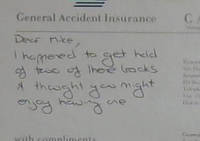 General Accident Insurance
Dear Mike,
I happened to get hold
of two of these books
& thought you might
enjoy having one
with compliments